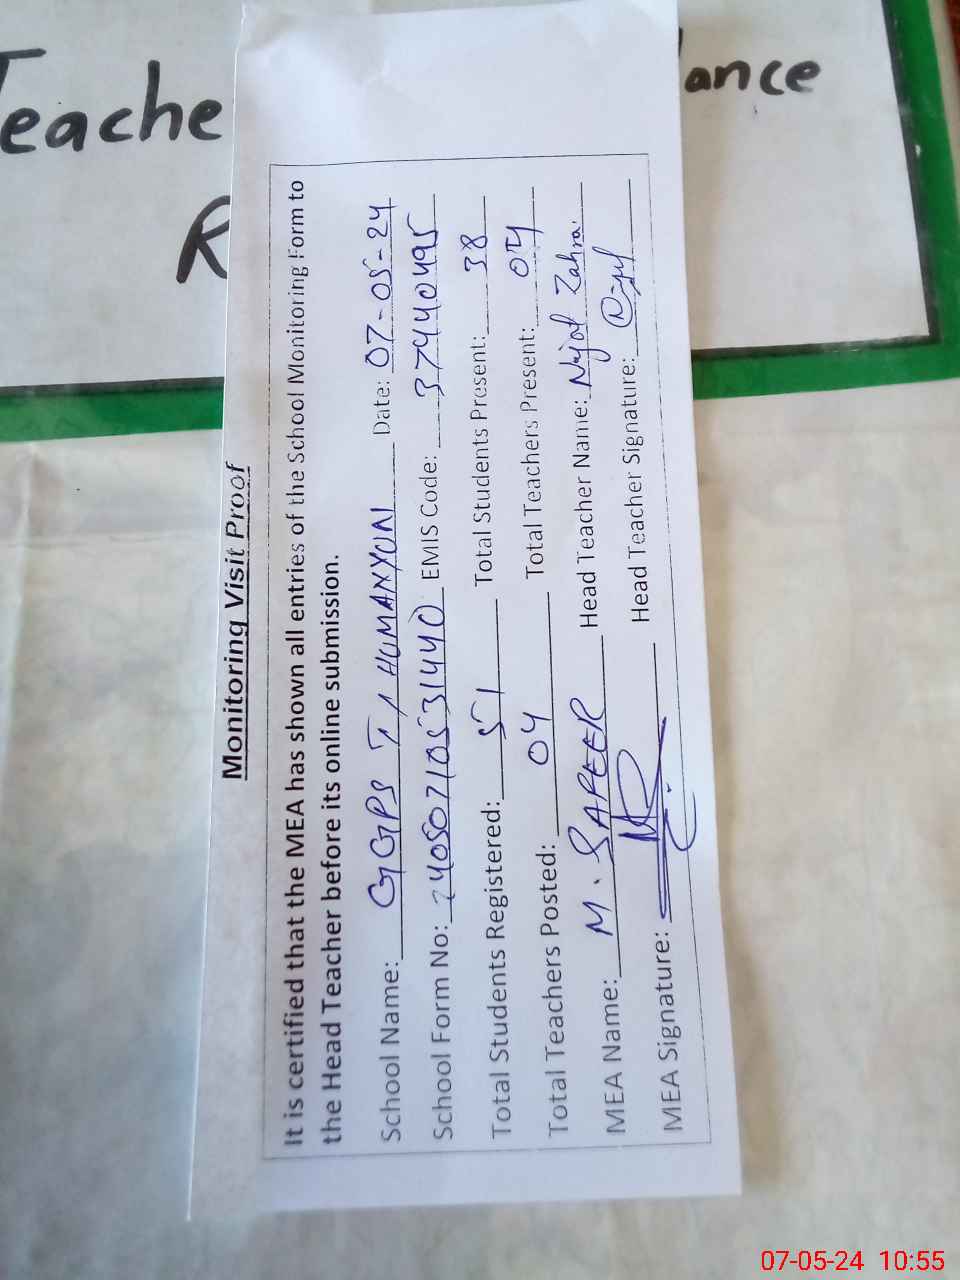 Teache
ance
R
Monitoring Visit Proof
It is certified that the MEA has shown all entries of the School Monitoring Form to
the Head Teacher before its online submission.
School Name: GGPS T A HUMANYUN Date: 07-05-24
School Form No: 24050710531440 EMIS Code: 37440495
Total Students Registered: 51 Total Students Present: 38
Total Teachers Posted: 04 Total Teachers Present: 04
MEA Name: M. SAFEER Head Teacher Name: Najaf Zahra
MEA Signature: Head Teacher Signature:
07-05-24 10:55